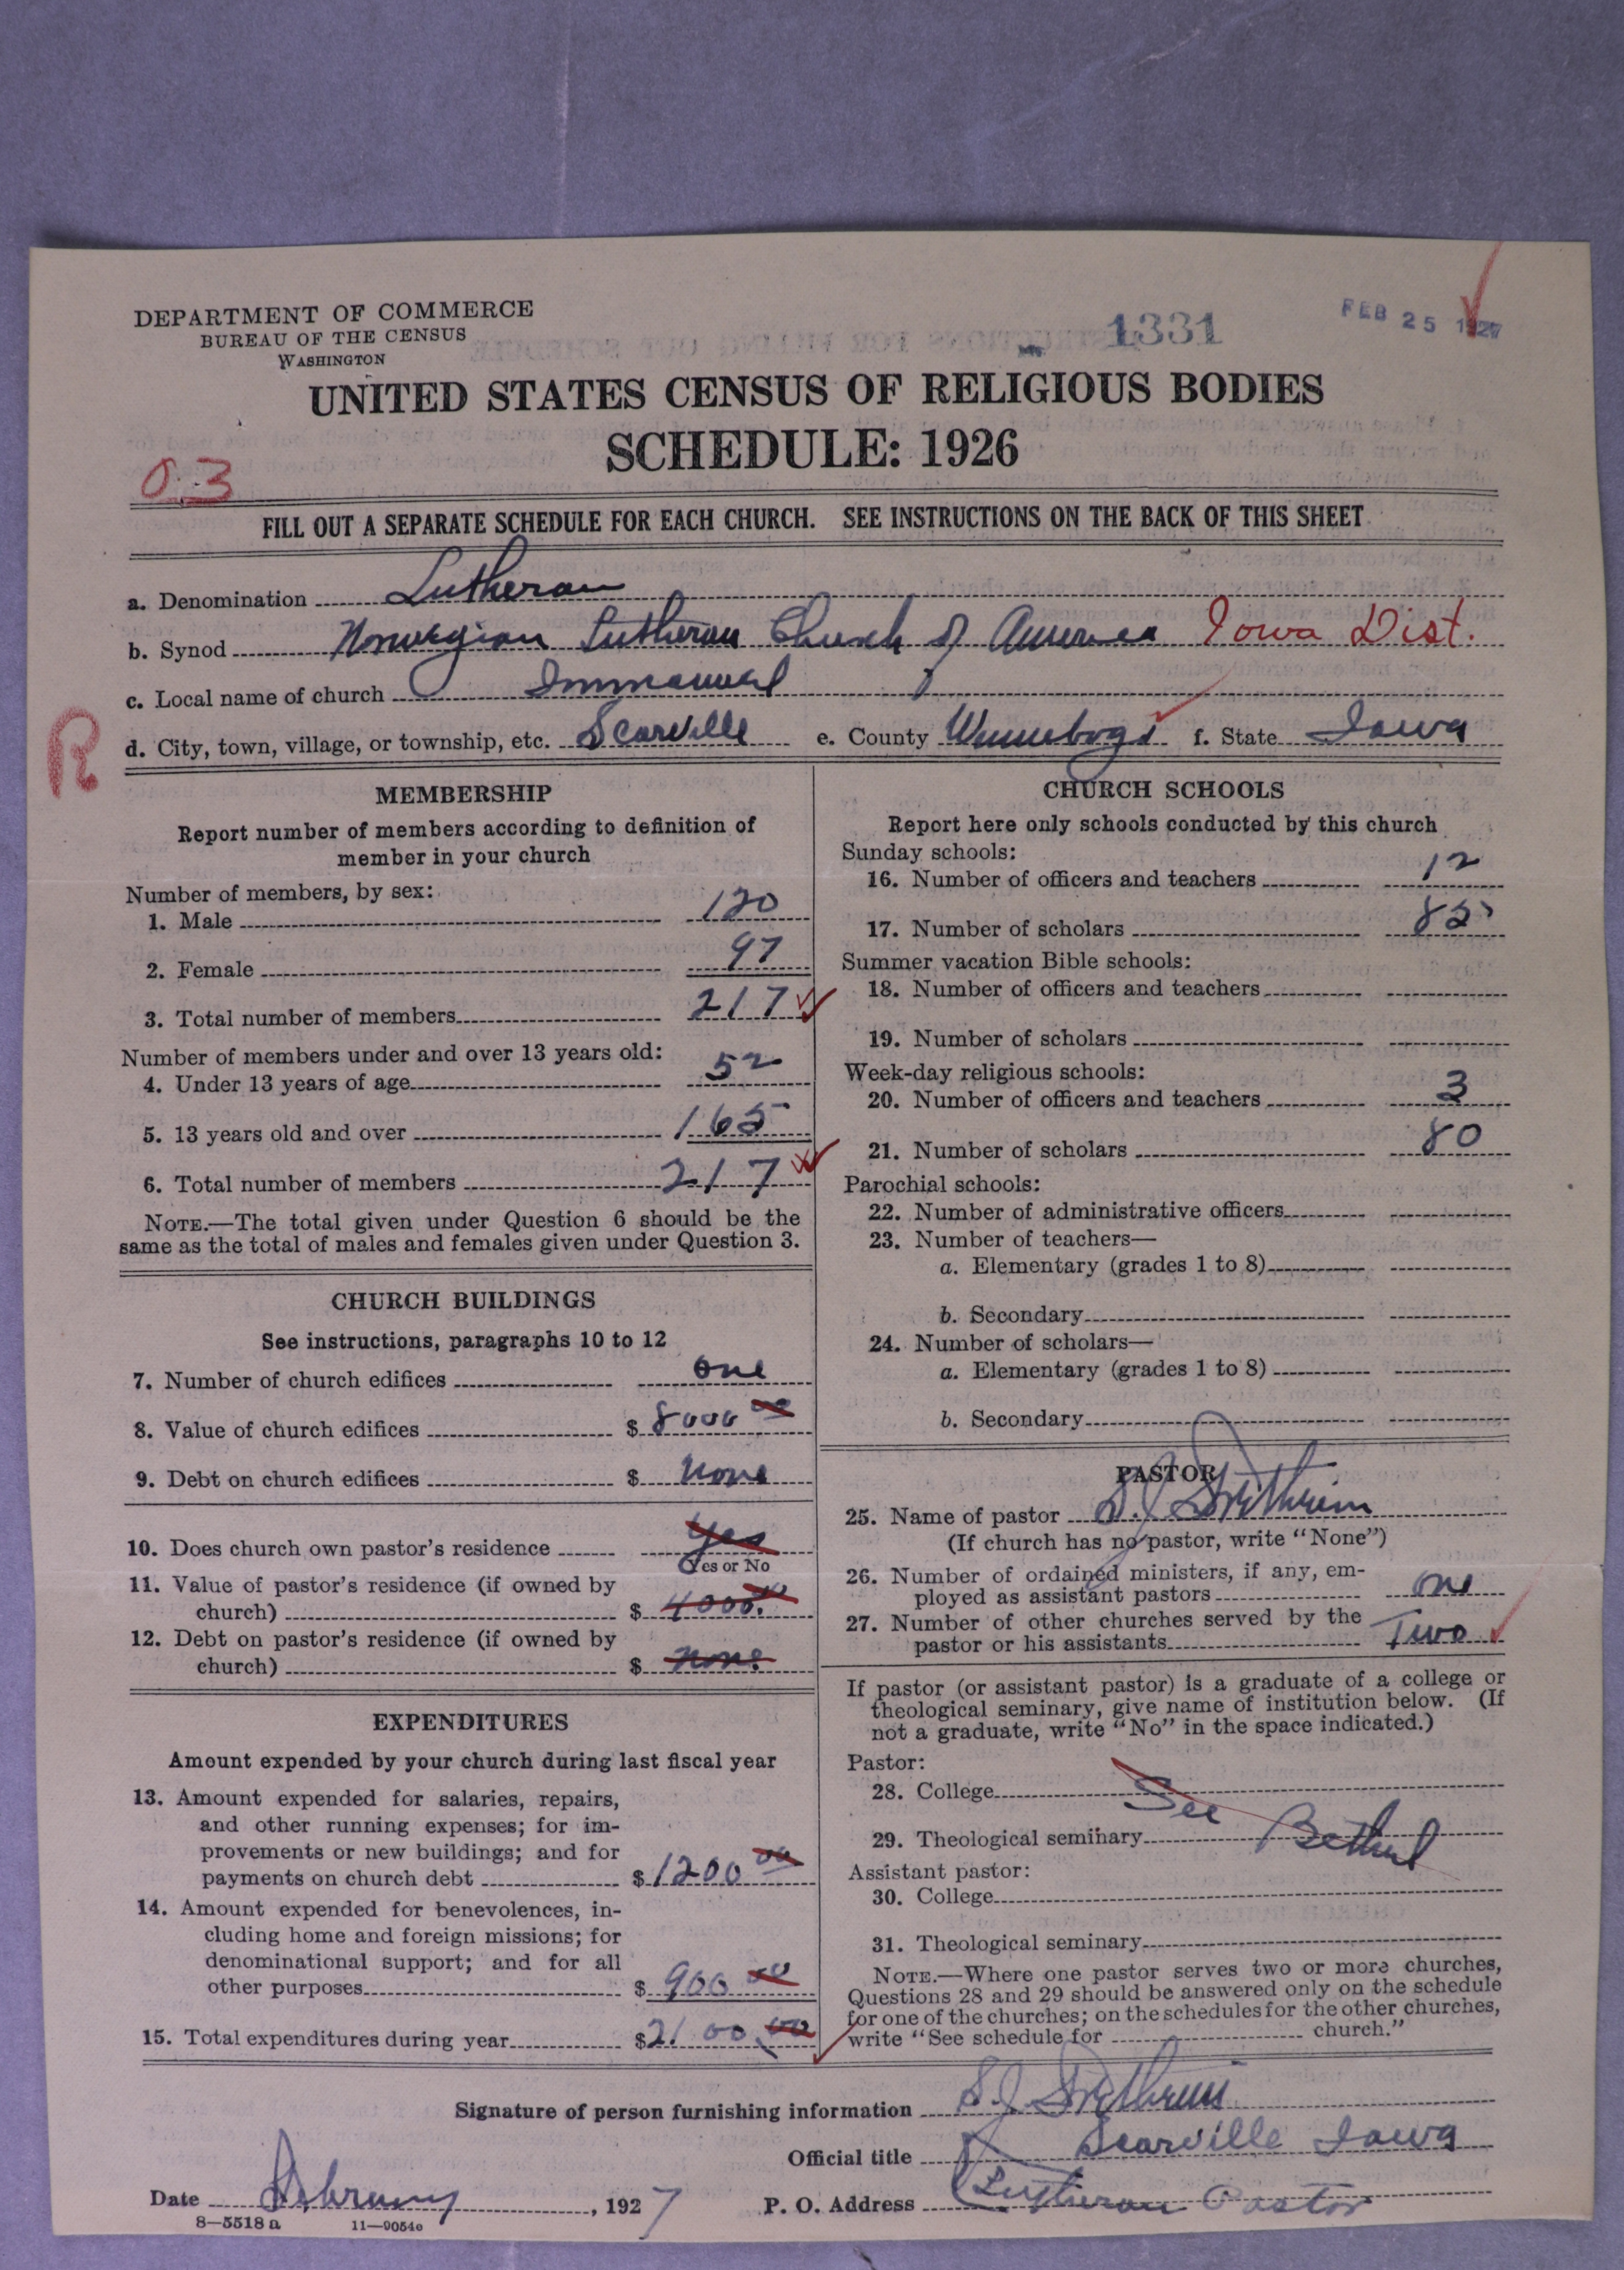 DEPARTMENT OF COMMERCE
BUREAU OF THE CENSUS
WASHINGTON
1331
FEB 25 1927
UNITED STATES CENSUS OF RELIGIOUS BODIES
SCHEDULE: 1926
03
FILL OUT A SEPARATE SCHEDULE FOR EACH CHURCH. SEE INSTRUCTIONS ON THE BACK OF THIS SHEET
a. Denomination Lutheran
b. Synod Norwegian Lutheran Church of America Iowa Dist.
c. Local name of church Immanuel
R
d. City, town, village, or township, etc. Scarville e. County Winnebago f. State Iowa
MEMBERSHIP
Report number of members according to definition of
member in your church
Number of members, by sex:
1. Male 120
2. Female 97
3. Total number of members 217
Number of members under and over 13 years old:
4. Under 13 years of age 52
5. 13 years old and over 165
6. Total number of members 217
NOTE.—The total given under Question 6 should be the
same as the total of males and females given under Question 3.
CHURCH BUILDINGS
See instructions, paragraphs 10 to 12
7. Number of church edifices one
8. Value of church edifices $ 8000 00
9. Debt on church edifices $ none
10. Does church own pastor's residence Yes
Yes or No
11. Value of pastor's residence (if owned by
church) $ 4000.00
12. Debt on pastor's residence (if owned by
church) $ none
EXPENDITURES
Amount expended by your church during last fiscal year
13. Amount expended for salaries, repairs,
and other running expenses; for im-
provements or new buildings; and for
payments on church debt $ 1200 00
14. Amount expended for benevolences, in-
cluding home and foreign missions; for
denominational support; and for all
other purposes $ 900 00
15. Total expenditures during year $ 2100.00
CHURCH SCHOOLS
Report here only schools conducted by this church
Sunday schools:
16. Number of officers and teachers 12
17. Number of scholars 85
Summer vacation Bible schools:
18. Number of officers and teachers
19. Number of scholars
Week-day religious schools:
20. Number of officers and teachers 3
21. Number of scholars 80
Parochial schools:
22. Number of administrative officers
23. Number of teachers—
a. Elementary (grades 1 to 8)
b. Secondary
24. Number of scholars—
a. Elementary (grades 1 to 8)
b. Secondary
PASTOR
25. Name of pastor S. J.
(If church has no pastor, write "None")
26. Number of ordained ministers, if any, em-
ployed as assistant pastors one
27. Number of other churches served by the
pastor or his assistants Two
If pastor (or assistant pastor) is a graduate of a college or
theological seminary, give name of institution below. (If
not a graduate, write "No" in the space indicated.)
Pastor:
28. College See
29. Theological seminary Bethel
Assistant pastor:
30. College
31. Theological seminary
NOTE.—Where one pastor serves two or more churches,
Questions 28 and 29 should be answered only on the schedule
for one of the churches; on the schedules for the other churches,
write "See schedule for church."
Signature of person furnishing information S. J.
Official title Scarville Iowa
Date February, 1927 P. O. Address Lutheran Pastor
8—5518 a 11—9054e